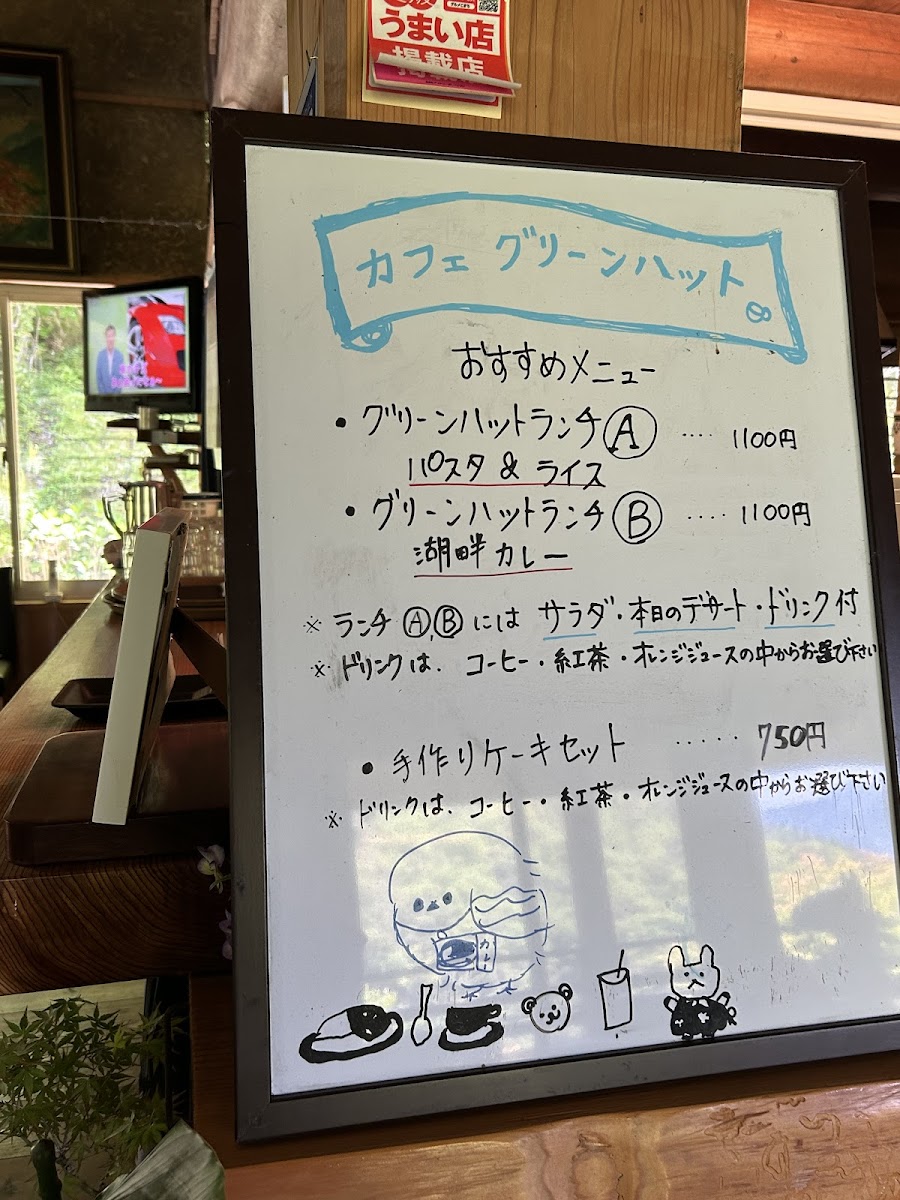 うまい店
掲載店
カフェ グリーンハット
おすすめメニュー
• グリーンハットランチ Ⓐ ‥‥ 1100円
パスタ & ライス
• グリーンハットランチ Ⓑ ‥‥ 1100円
湖畔カレー
※ ランチ Ⓐ,Ⓑ には サラダ・本日のデザート・ドリンク付
※ ドリンクは、コーヒー・紅茶・オレンジジュースの中からお選び下さい
• 手作りケーキセット ‥‥‥ 750円
※ ドリンクは、コーヒー・紅茶・オレンジジュースの中からお選び下さい
カレー